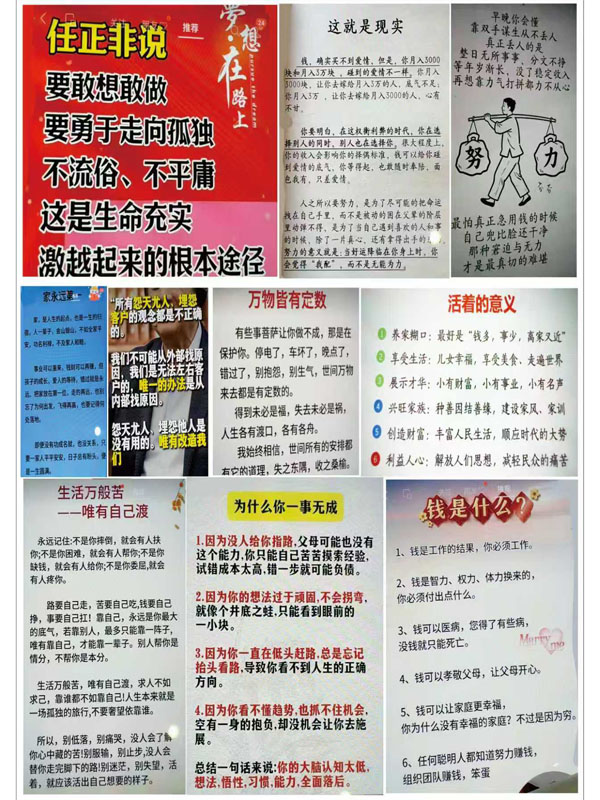 任正非说
推荐
要敢想敢做
要勇于走向孤独
不流俗、不平庸
这是生命充实
激越起来的根本途径
梦想·在路上
这就是现实
钱，确实买不到爱情，但是，你月入3000
块和月入3万块，碰到的爱情不一样，你月入
3000块，让你去嫁给月入3万的人，底气不足；
你月入3万，让你去嫁给月入3000的人，心有
不甘。
你要明白，在这权衡利弊的时代，你在选
择别人的同时，别人也在选择你，很大程度上，
你的收入会影响你的择偶标准，钱可以给你碰
到爱情的底气，你等得起，也敢随时奉陪，面
包我有，只差爱情。
人之所以要努力，是为了尽可能的把命运
找在自己手里，而不是被动的困在父辈的阶层
里动弹不得，是为了当自己遇到喜欢的人和事
的时候，除了一片真心，还有拿得出手的
努力的意义就是：当好运降临在你身上时，你
会觉得“我配”，而不是无能为力。
早晚你会懂
靠双手谋生从不丢人
真正丢人的是
整日无所事事、分文不挣
等年岁渐长、没了稳定收入
再想靠力气打拼都力不从心
努
力
最怕真正急用钱的时候
自己兜比脸还干净
那种窘迫与无力
才是最真切的难堪
家永远第一
家，是人生的起点，也是一生的归
宿，人一辈子，金山银山，不如全家平
安，功名利禄，不及家人相陪。
事业可以重来，钱财可以再赚，但
孩子的成长，爱人的等待，错过就是永
远，把家放在第一位，走的再远，也别
忘了为何出发，飞得再高，也要记得何
处落地。
即使没有功成名就，也没关系，只
要一家人平平安安，日子总有盼头，便
是一生圆满。
“所有怨天尤人，埋怨
客户的观念都是不正确
的。
我们不可能从外部找原
因，我们是无法左右客
户的，唯一的办法是从
内部找原因。
怨天尤人、埋怨他人是
没有用的。唯有改造我
们
万物皆有定数
有些事菩萨让你做不成，那是在
保护你。停电了，车坏了，晚点了，
错过了，别抱怨，别生气，世间万物
来去都是有定数的。
得到未必是福，失去未必是祸，
人生各有渡口，各有各舟。
我始终相信，世间所有的安排都
有它的道理，失之东隅，收之桑榆。
活着的意义
1 养家糊口：最好是“钱多，事少，离家又近”
2 享受生活：儿女幸福，享受美食、走遍世界
3 展示才华：小有财富，小有事业，小有名声
4 兴旺家族：种善因结善缘，建设家风、家训
5 创造财富：丰富人民生活，顺应时代的大势
6 利益人心：解放人们思想，减轻民众的痛苦
生活万般苦
——唯有自己渡
永远记住:不是你摔倒，就会有人扶
你;不是你困难，就会有人帮你;不是你
缺钱，就会有人给你;不是你委屈,就会
有人疼你。
路要自己走，苦要自己吃,钱要自己
挣，事要自己扛！靠自己，永远是你最大
的底气，若靠别人，最多只能靠一阵子，
唯有靠自己，才能靠一辈子。别人帮你是
情分，不帮你是本分。
生活万般苦，唯有自己渡，求人不如
求己，靠谁都不如靠自己!人生本来就是
一场孤独的旅行，不要奢望依靠谁。
所以，别低落，别痛哭，没人会了解
你心中藏的苦!别服输，别止步,没人会
替你走完脚下的路!别迷茫，别失望，活
着，就应该活出自己想要的样子。
为什么你一事无成
1.因为没人给你指路,父母可能也没有
这个能力,你只能自己苦苦摸索经验,
试错成本太高,错一步就可能负债。
2.因为你的想法过于顽固,不会拐弯,
就像个井底之蛙,只能看到眼前的
一小块。
3.因为你一直在低头赶路,总是忘记
抬头看路,导致你看不到人生的正确
方向。
4.因为你看不懂趋势,也抓不住机会,
空有一身的抱负,却没机会让你去施
展。
总结一句话来说:你的大脑认知太低,
想法,悟性,习惯,能力,全面落后。
钱是什么?
1、钱是工作的结果，你必须工作。
2、钱是智力、权力、体力换来的，
你必须付出点什么。
3、钱可以医病，您得了有些病，
没钱就只能死亡。
4、钱可以孝敬父母，让父母开心。
5、钱可以让家庭更幸福，
你为什么没有幸福的家庭？不过是因为穷。
6、任何聪明人都知道努力赚钱，
组织团队赚钱，笨蛋